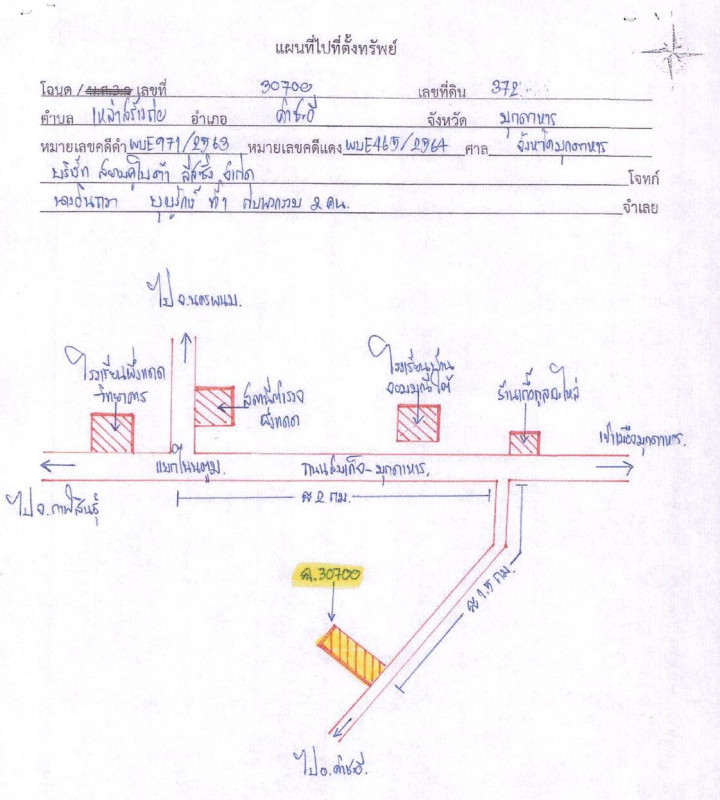 แผนที่ไปที่ตั้งทรัพย์
โฉนด / น.ส.3.ก เลขที่ 30700 เลขที่ดิน 372
ตำบล เหล่าสร้างถ่อ อำเภอ คำชะอี จังหวัด มุกดาหาร
หมายเลขคดีดำ ผบE971/2563 หมายเลขคดีแดง ผบE465/2564 ศาล จังหวัดมุกดาหาร
บริษัท สยามคูโบต้า ลีสซิ่ง จำกัด โจทก์
ที่1 กับพวกรวม 2 คน. จำเลย
ไป จ.นครพนม.
โรงเรียนผึ่งแดด
วิทยาคาร
สถานีตำรวจ
ผึ่งแดด
โรงเรียนบ้าน
จอมมณีใต้
ร้านเกื้อกูลอะไหล่
เข้าเมืองมุกดาหาร.
แยกโนนตูม.
ถนนสมเด็จ-มุกดาหาร.
ไป จ.กาฬสินธุ์
≈ 2 กม.
≈ 1.5 กม.
ฉ.30700
ไป อ.คำชะอี.